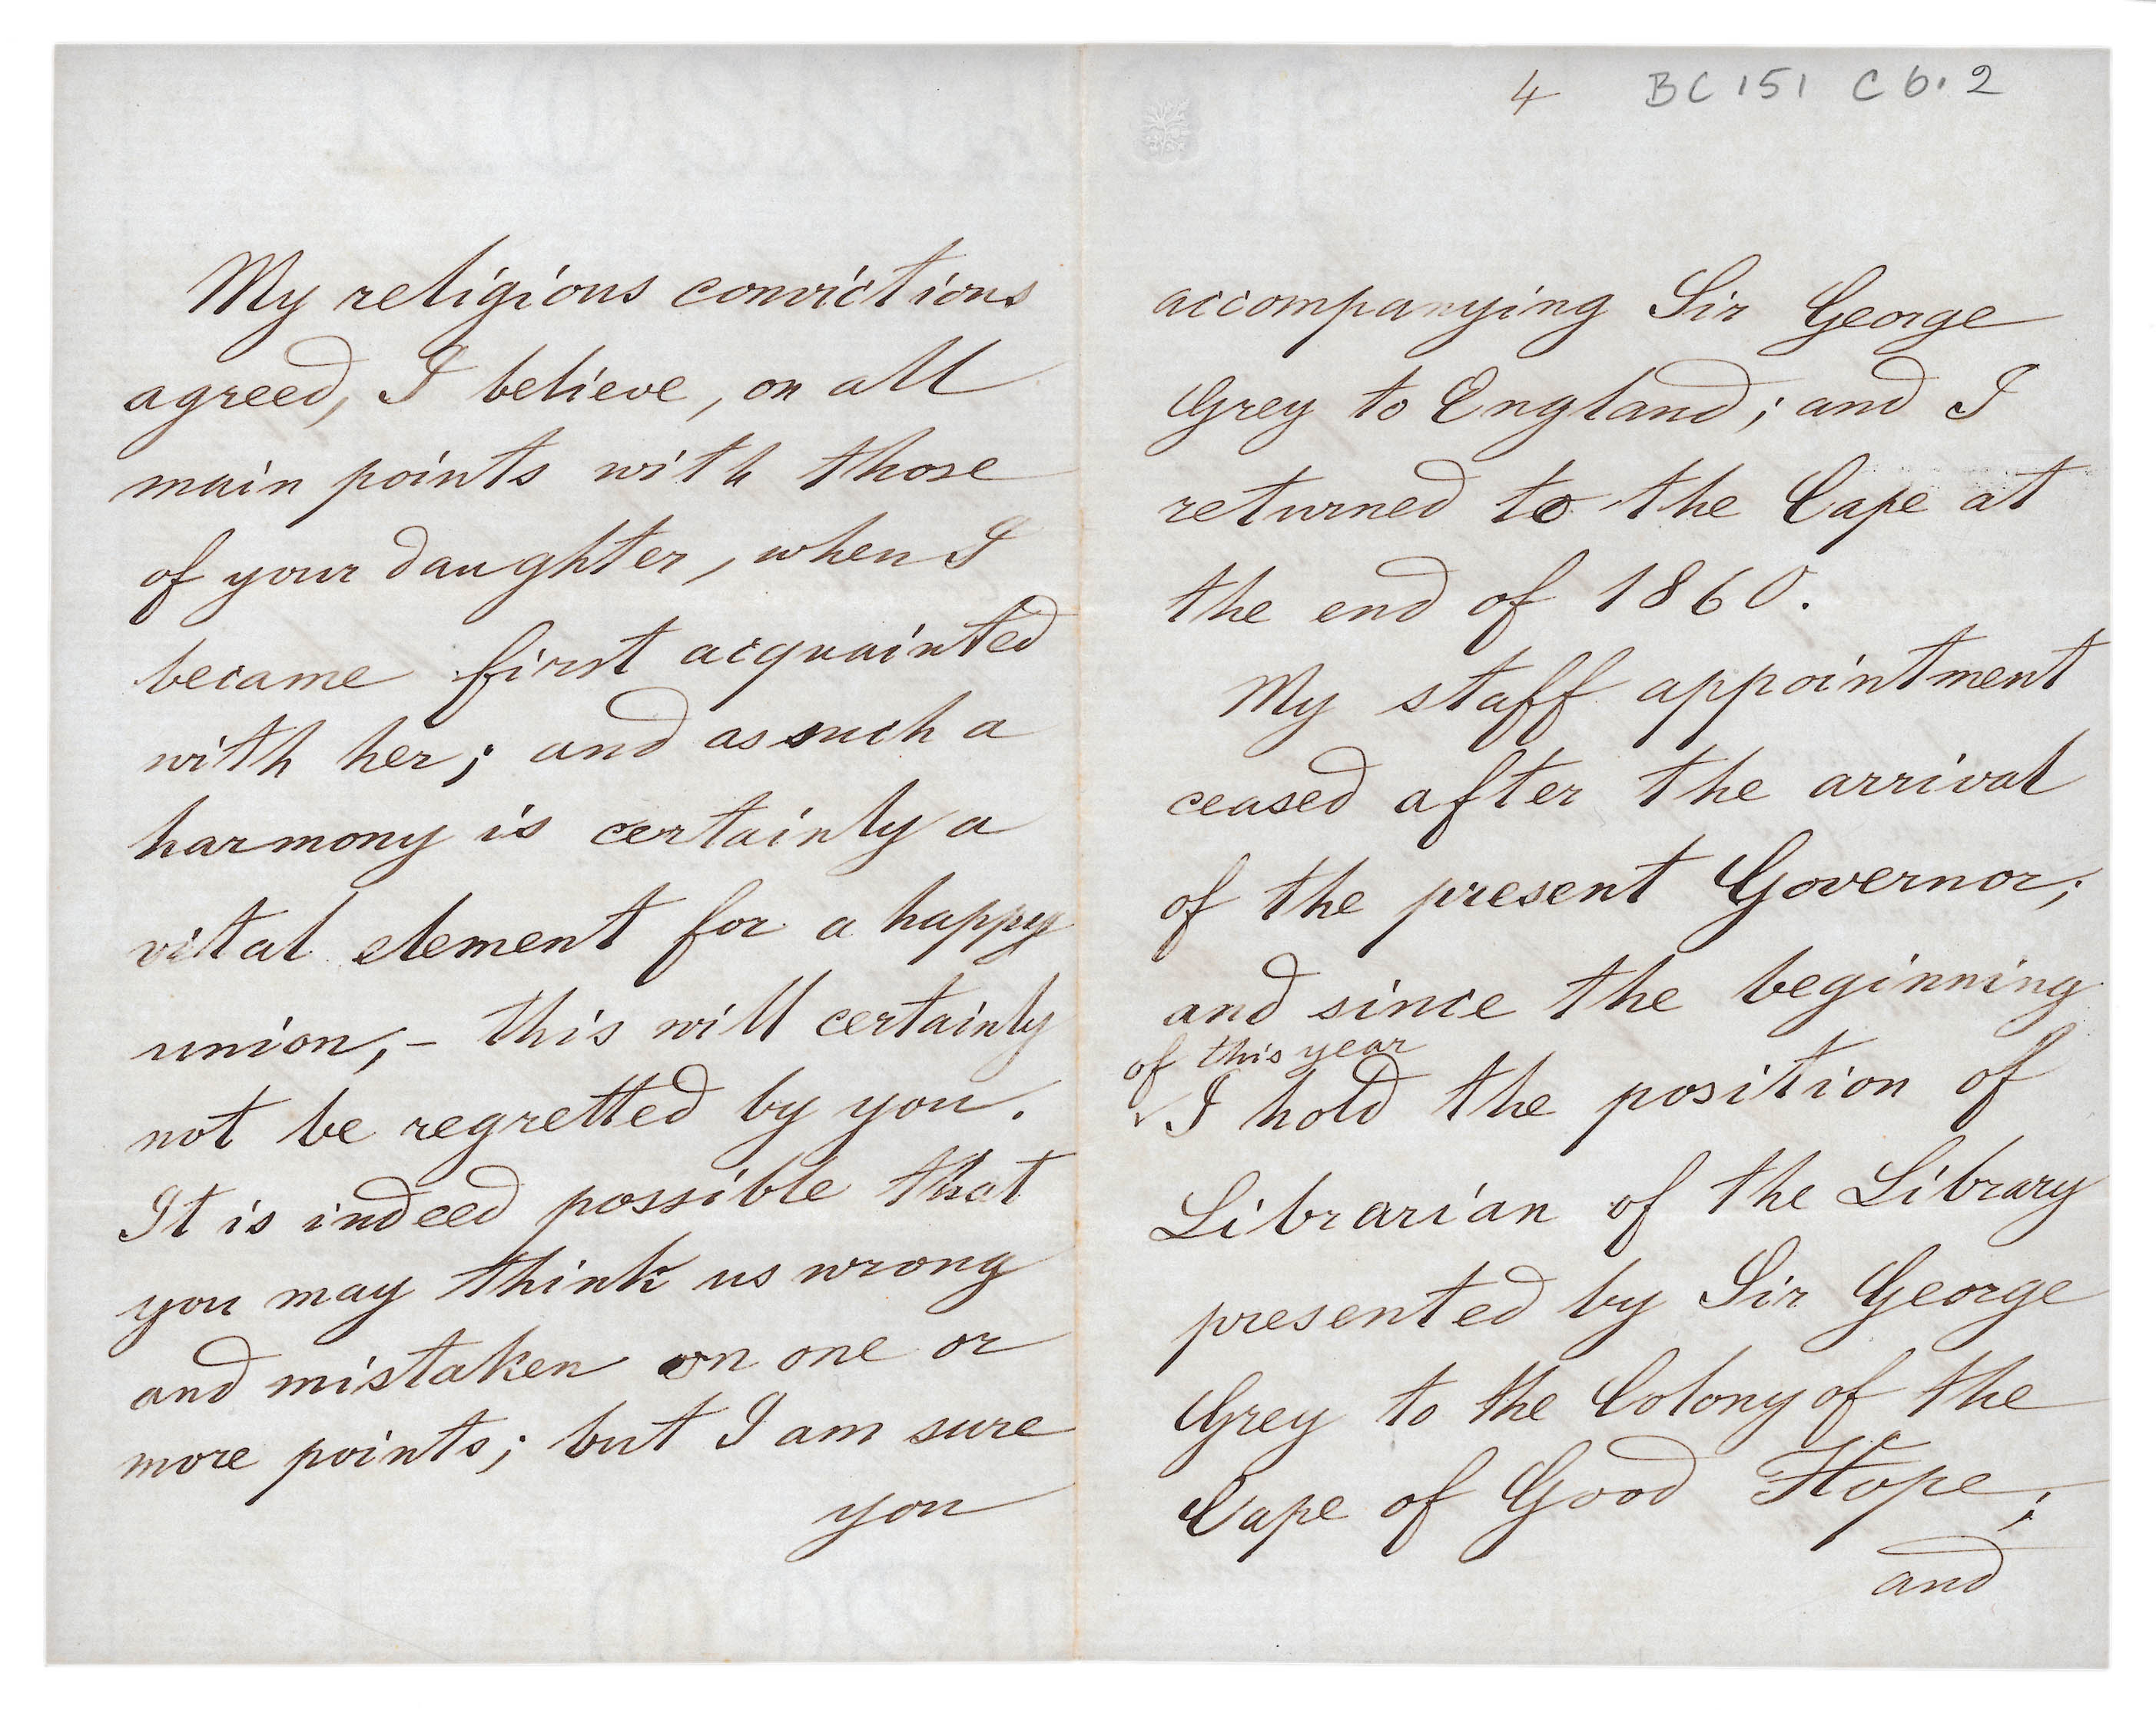 My religious convictions
agreed, I believe, on all
main points with those
of your daughter, when I
became first acquainted
with her; and as such a
harmony is certainly a
vital element for a happy
union, – this will certainly
not be regretted by you.
It is indeed possible that
you may think us wrong
and mistaken on one or
more points; but I am sure
you
4 BC 151 C 6.2
accompanying Sir George
Grey to England; and I
returned to the Cape at
the end of 1860.
My staff appointment
ceased after the arrival
of the present Governor;
and since the beginning
of this year
I hold the position of
Librarian of the Library
presented by Sir George
Grey to the Colony of the
Cape of Good Hope;
and